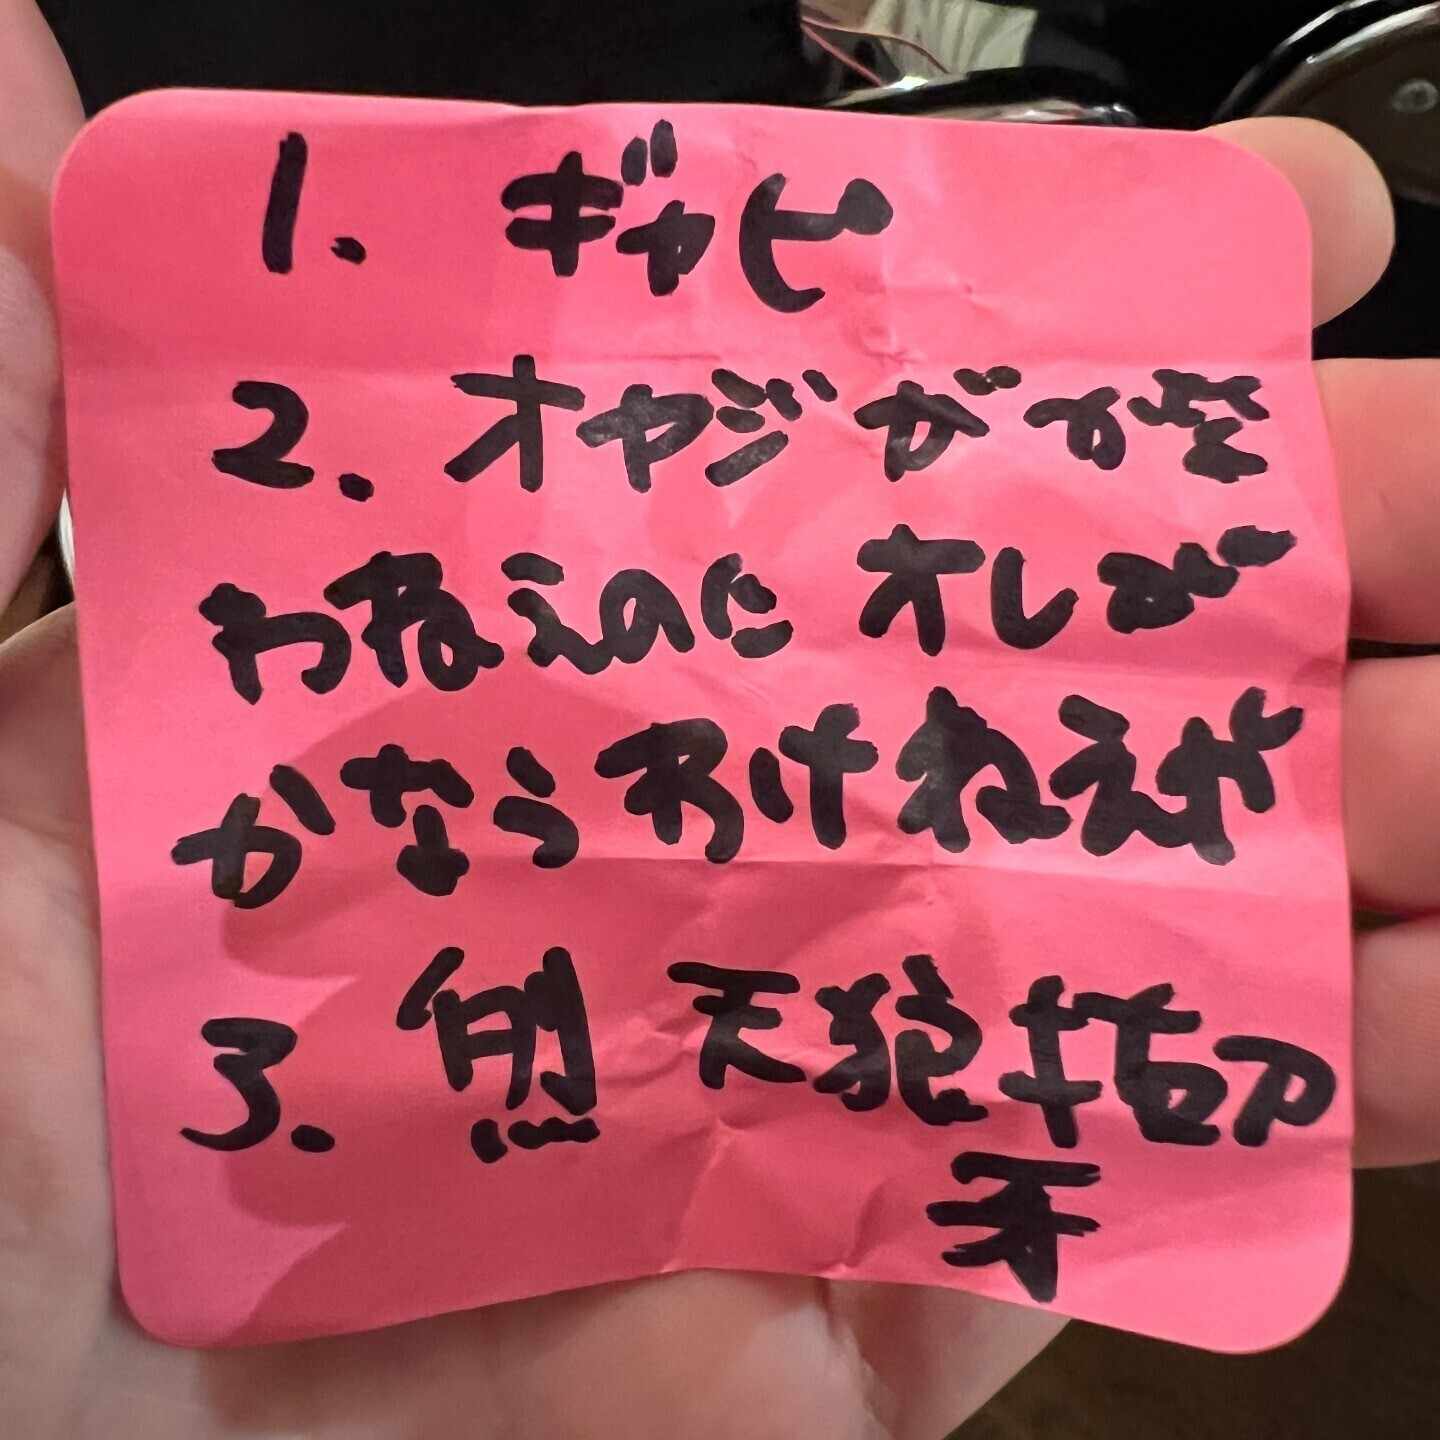 1. ギャピ
2. オヤジがかな
わねえのにオレが
かなうわけねえや
3. 天狼抜刀
牙